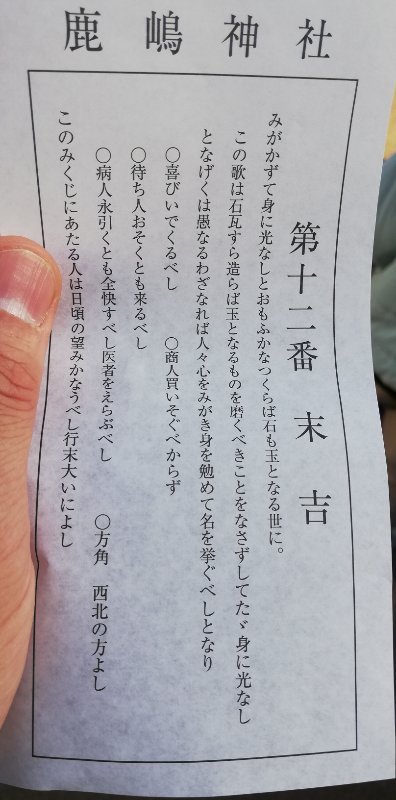 鹿嶋神社
第十二番 末吉
みがかずて身に光なしとおもふかなつくらば石も玉となる世に。
この歌は石瓦すら造らば玉となるものを磨くべきことをなさずしてたゞ身に光なし
となげくは愚なるわざなれば人々心をみがき身を勉めて名を挙ぐべしとなり
○喜びいでくるべし ○商人買いそぐべからず
○待ち人おそくとも来るべし
○病人永引くとも全快すべし医者をえらぶべし ○方角 西北の方よし
このみくじにあたる人は日頃の望みかなうべし行末大いによし